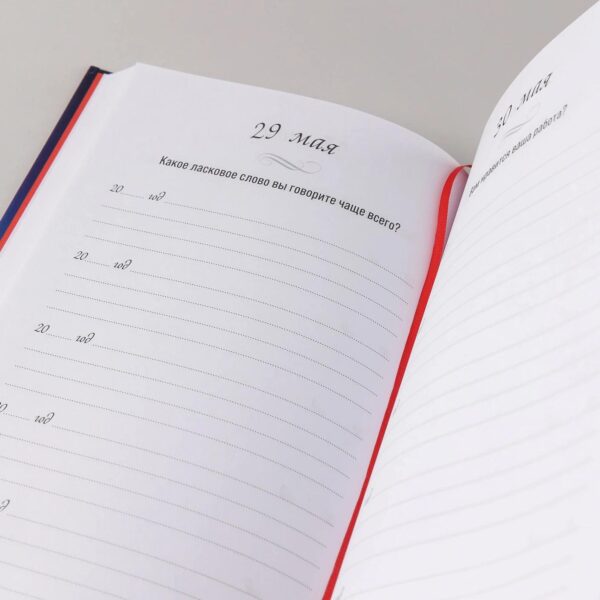 29 мая
Какое ласковое слово вы говорите чаще всего?
20 год
20 год
20 год
год
30 мая
нравится ваша работа?